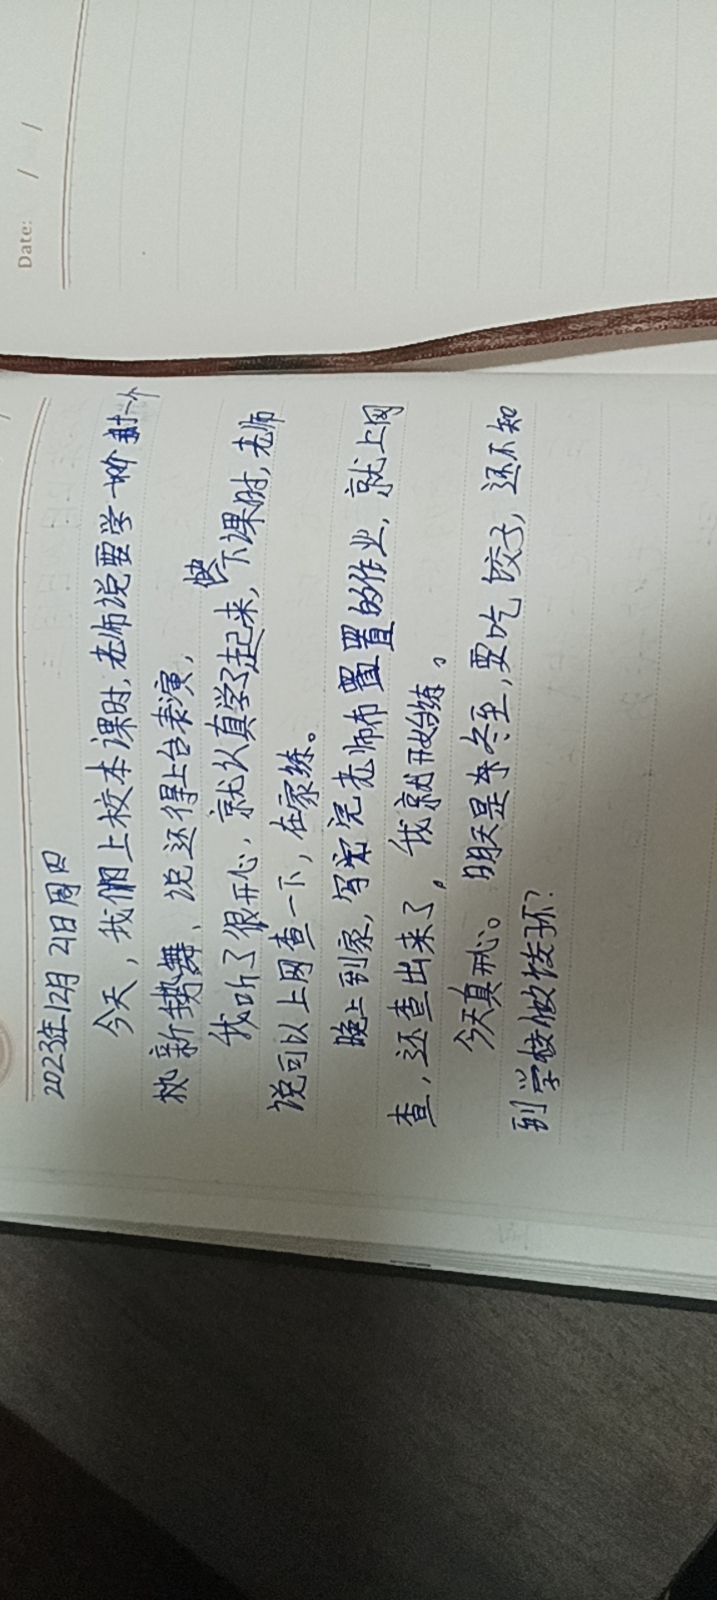 Date: / /
2023年12月21日周四
今天，我们上校本课时，老师说要学一个
新舞，说还得上台表演，
我听了很开心，就认真学了起来，快下课时，老师
说可以上网查一下，在家练。
晚上到家，写完老师布置的作业，就上网
查，还查出来了，我就开始练。
今天真开心。明天是冬至，要吃饺子，还不知
到学校做饺子不？